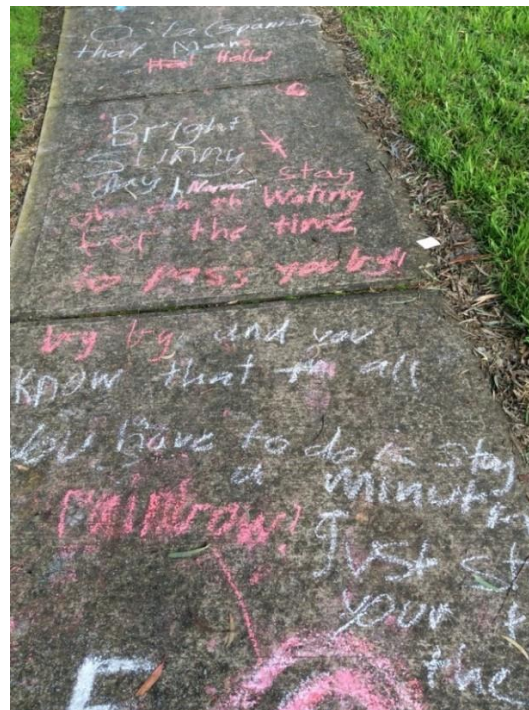 (Spanish)
that Means
Hello!
Bright
Sunny
day Name stay
Wating
for the time
to pass you by!!
by by and you
know that all
you have to do is stay
a minute
rainbow!
Just st
your
the